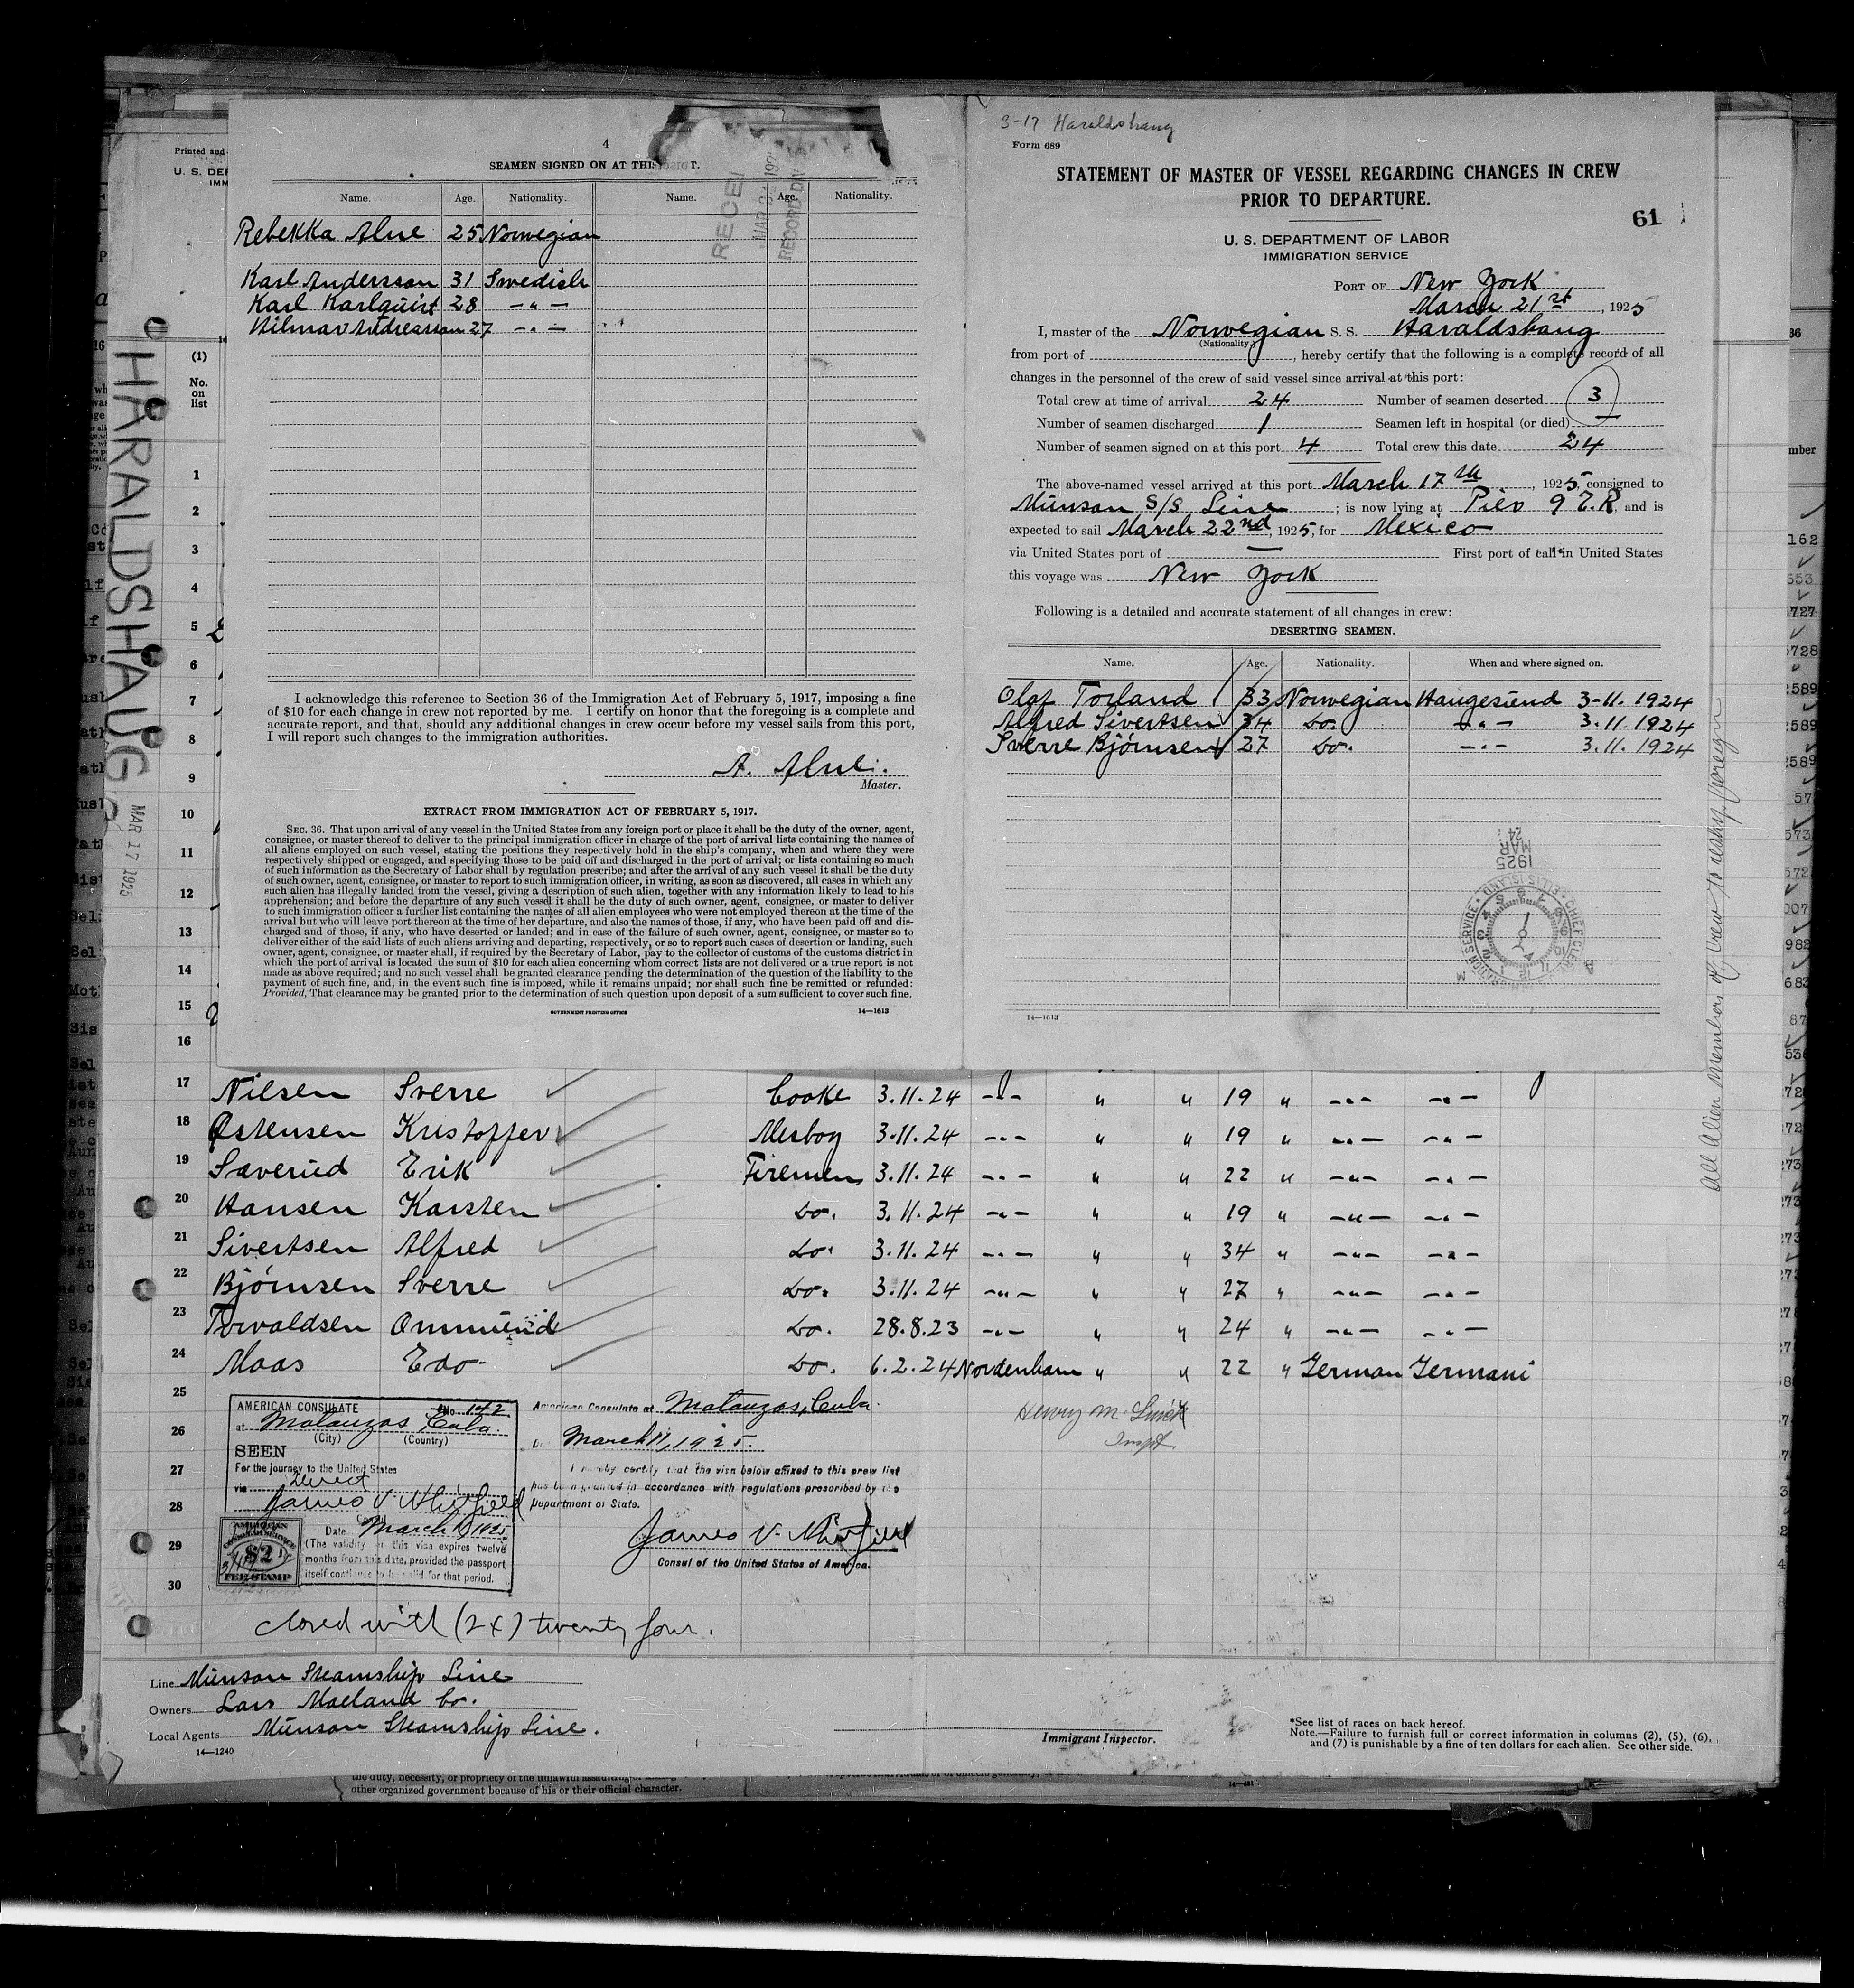 4
SEAMEN SIGNED ON AT THIS
Name. Age. Nationality. Name. Age. Nationality.
Rebekka Alne 25 Norwegian
Karl Andersson 31 Swedish
Karl Karlquist 28 - " -
Hilmar Andreasson 27 - " -
I acknowledge this reference to Section 36 of the Immigration Act of February 5, 1917, imposing a fine
of $10 for each change in crew not reported by me. I certify on honor that the foregoing is a complete and
accurate report, and that, should any additional changes in crew occur before my vessel sails from this port,
I will report such changes to the immigration authorities.
A. Alne.
Master.
EXTRACT FROM IMMIGRATION ACT OF FEBRUARY 5, 1917.
SEC. 36. That upon arrival of any vessel in the United States from any foreign port or place it shall be the duty of the owner, agent,
consignee, or master thereof to deliver to the principal immigration officer in charge of the port of arrival lists containing the names of
all aliens employed on such vessel, stating the positions they respectively hold in the ship's company, when and where they were
respectively shipped or engaged, and specifying those to be paid off and discharged in the port of arrival; or lists containing so much
of such information as the Secretary of Labor shall by regulation prescribe; and after the arrival of any such vessel it shall be the duty
of such owner, agent, consignee, or master to report to such immigration officer, in writing, as soon as discovered, all cases in which any
such alien has illegally landed from the vessel, giving a description of such alien, together with any information likely to lead to his
apprehension; and before the departure of any such vessel it shall be the duty of such owner, agent, consignee, or master to deliver
to such immigration officer a further list containing the names of all alien employees who were not employed thereon at the time of the
arrival but who will leave port thereon at the time of her departure, and also the names of those, if any, who have been paid off and dis-
charged and of those, if any, who have deserted or landed; and in case of the failure of such owner, agent, consignee, or master so to
deliver either of the said lists of such aliens arriving and departing, respectively, or so to report such cases of desertion or landing, such
owner, agent, consignee, or master shall, if required by the Secretary of Labor, pay to the collector of customs of the customs district in
which the port of arrival is located the sum of $10 for each alien concerning whom correct lists are not delivered or a true report is not
made as above required; and no such vessel shall be granted clearance pending the determination of the question of the liability to the
payment of such fine, and, in the event such fine is imposed, while it remains unpaid; nor shall such fine be remitted or refunded:
Provided, That clearance may be granted prior to the determination of such question upon deposit of a sum sufficient to cover such fine.
GOVERNMENT PRINTING OFFICE 14—1613
3-17 Haraldshaug
Form 689
STATEMENT OF MASTER OF VESSEL REGARDING CHANGES IN CREW
PRIOR TO DEPARTURE.
61
U. S. DEPARTMENT OF LABOR
IMMIGRATION SERVICE
PORT OF New York
March 21st, 1925
I, master of the Norwegian S. S. Haraldshaug
(Nationality.)
from port of , hereby certify that the following is a complete record of all
changes in the personnel of the crew of said vessel since arrival at this port:
Total crew at time of arrival 24 Number of seamen deserted 3
Number of seamen discharged 1 Seamen left in hospital (or died) —
Number of seamen signed on at this port 4 Total crew this date 24
The above-named vessel arrived at this port March 17th, 1925, consigned to
Munson S/S Line ; is now lying at Pier 9 E.R. and is
expected to sail March 22nd, 1925, for Mexico
via United States port of — First port of call in United States
this voyage was New York
Following is a detailed and accurate statement of all changes in crew:
DESERTING SEAMEN.
Name. Age. Nationality. When and where signed on.
Olaf Torland 33 Norwegian Haugesund 3-11. 1924
Alfred Sivertsen 34 Do. - " - 3.11 1924
Sverre Bjørnsen 27 Do. - " - 3.11. 1924
1925
MAR
24
14—1613
All Alien members of Crew to reship foreign
HARALDSHAUG
MAR 17 1925
(1)
No.
on
list
1
2
3
4
5
6
7
8
9
10
11
12
13
14
15
16
17 Nilsen Sverre Cooke 3.11.24 - " - " " 19 " - " - - " -
18 Østensen Kristoffer Mesboy 3.11.24 - " - " " 19 " - " - - " -
19 Saverud Erik Firemen 3.11.24 - " - " " 22 " - " - - " -
20 Hansen Karsten Do. 3.11.24 - " - " " 19 " - " - - " -
21 Sivertsen Alfred Do. 3.11.24 - " - " " 34 " - " - - " -
22 Bjørnsen Sverre Do. 3.11.24 - " - " " 27 " - " - - " -
23 Torvaldsen Ommund Do. 28.8.23 - " - " " 24 " - " - - " -
24 Maas Edo Do. 6.2.24 Nordenham " " 22 " German Germani
25
26
27
28
29
30
AMERICAN CONSULATE No. 142
at Matanzas Cuba.
(City) (Country)
SEEN
For the journey to the United States
via Direct
James V. Whitfield
Date March 11 1925
(The validity of this visa expires twelve
months from this date, provided the passport
itself continues to be valid for that period.
AMERICAN
CONSULAR SERVICE
$2
FEE STAMP
American Consulate at Matanzas, Cuba.
March 11, 1925.
I hereby certify that the visa below affixed to this crew list
has been granted in accordance with regulations prescribed by the
Department of State.
James V. Whitfield
Consul of the United States of America.
Henry M.
Inspt.
closed with (24) twenty four.
Line Munson Steamship Line
Owners Lars Maeland Co.
Local Agents Munson Steamship Line.
14—1240
Immigrant Inspector.
*See list of races on back hereof.
Note.—Failure to furnish full or correct information in columns (2), (5), (6),
and (7) is punishable by a fine of ten dollars for each alien. See other side.
other organized government because of his or their official character.